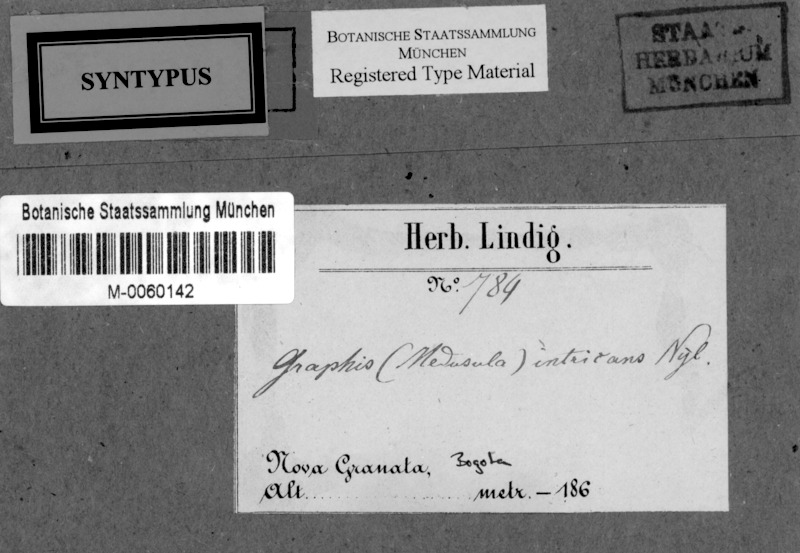 SYNTYPUS
BOTANISCHE STAATSSAMMLUNG
MÜNCHEN
Registered Type Material
STAATS-
HERBARIUM
MÜNCHEN
Botanische Staatssammlung München
M-0060142
Herb. Lindig.
No. 784
Graphis (Medusula) intricans Nyl.
Nova Granata, Bogota
Alt. metr. — 186